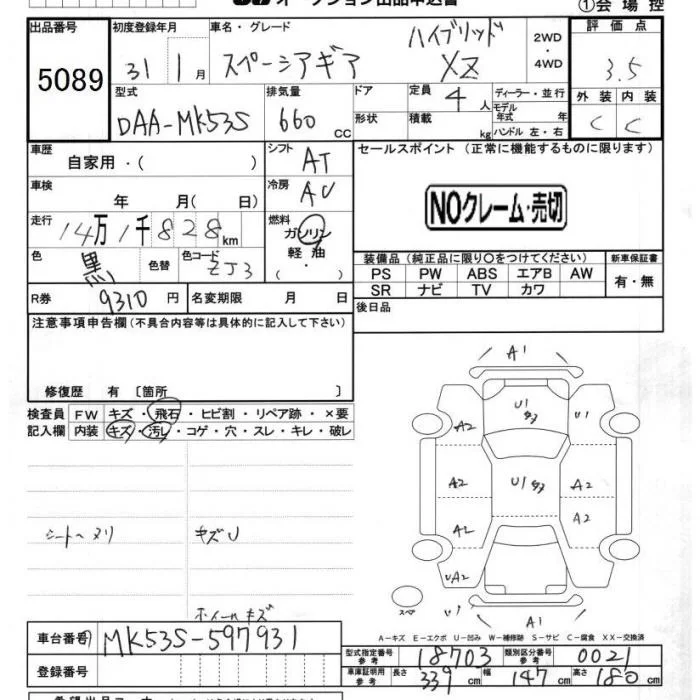 オークション出品申込書
①会場控
出品番号 5089
初度登録年月 31 1月
車名・グレード スペーシアギア ハイブリッド XZ
2WD・4WD
評価点 3.5
外装 C 内装 C
型式 DAA-MK53S
排気量 660 cc
ドア 形状
定員 4人
積載 kg
ディーラー・並行
モデル年式 年
ハンドル 左・右
車歴 自家用・( )
シフト AT
セールスポイント (正常に機能するものに限ります)
NOクレーム・売切
車検 年 月( 日)
冷房 AC
走行 14万1千828km
燃料 ガソリン 軽油 ( ・ )
色 黒 色替 色コード ZJ3
装備品 (純正品に限り○をつけてください)
新車保証書 有・無
PS PW ABS エアB AW
SR ナビ TV カワ
R券 9310円
名変期限 月 日
後日品
注意事項申告欄 (不具合内容等は具体的に記入して下さい)
修復歴 有 〔箇所 〕
検査員記入欄
FW キズ・飛石・ヒビ割・リペア跡・×要
内装 キズ・汚し・コゲ・穴・スレ・キレ・破レ
シートヘタリ キズU
ホイールキズ
A1
U1 A2 U1
A2 U1 A2
A2 A2
UA2
スペア U1 A1
A-キズ E-エクボ U-凹み W-補修跡 S-サビ C-腐食 XX-交換済
車台番号 MK53S-597931
型式指定番号 参考 18703
類別区分番号 参考 0021
登録番号
車庫証明用 参考 長さ 339cm 幅 147cm 高さ 180cm